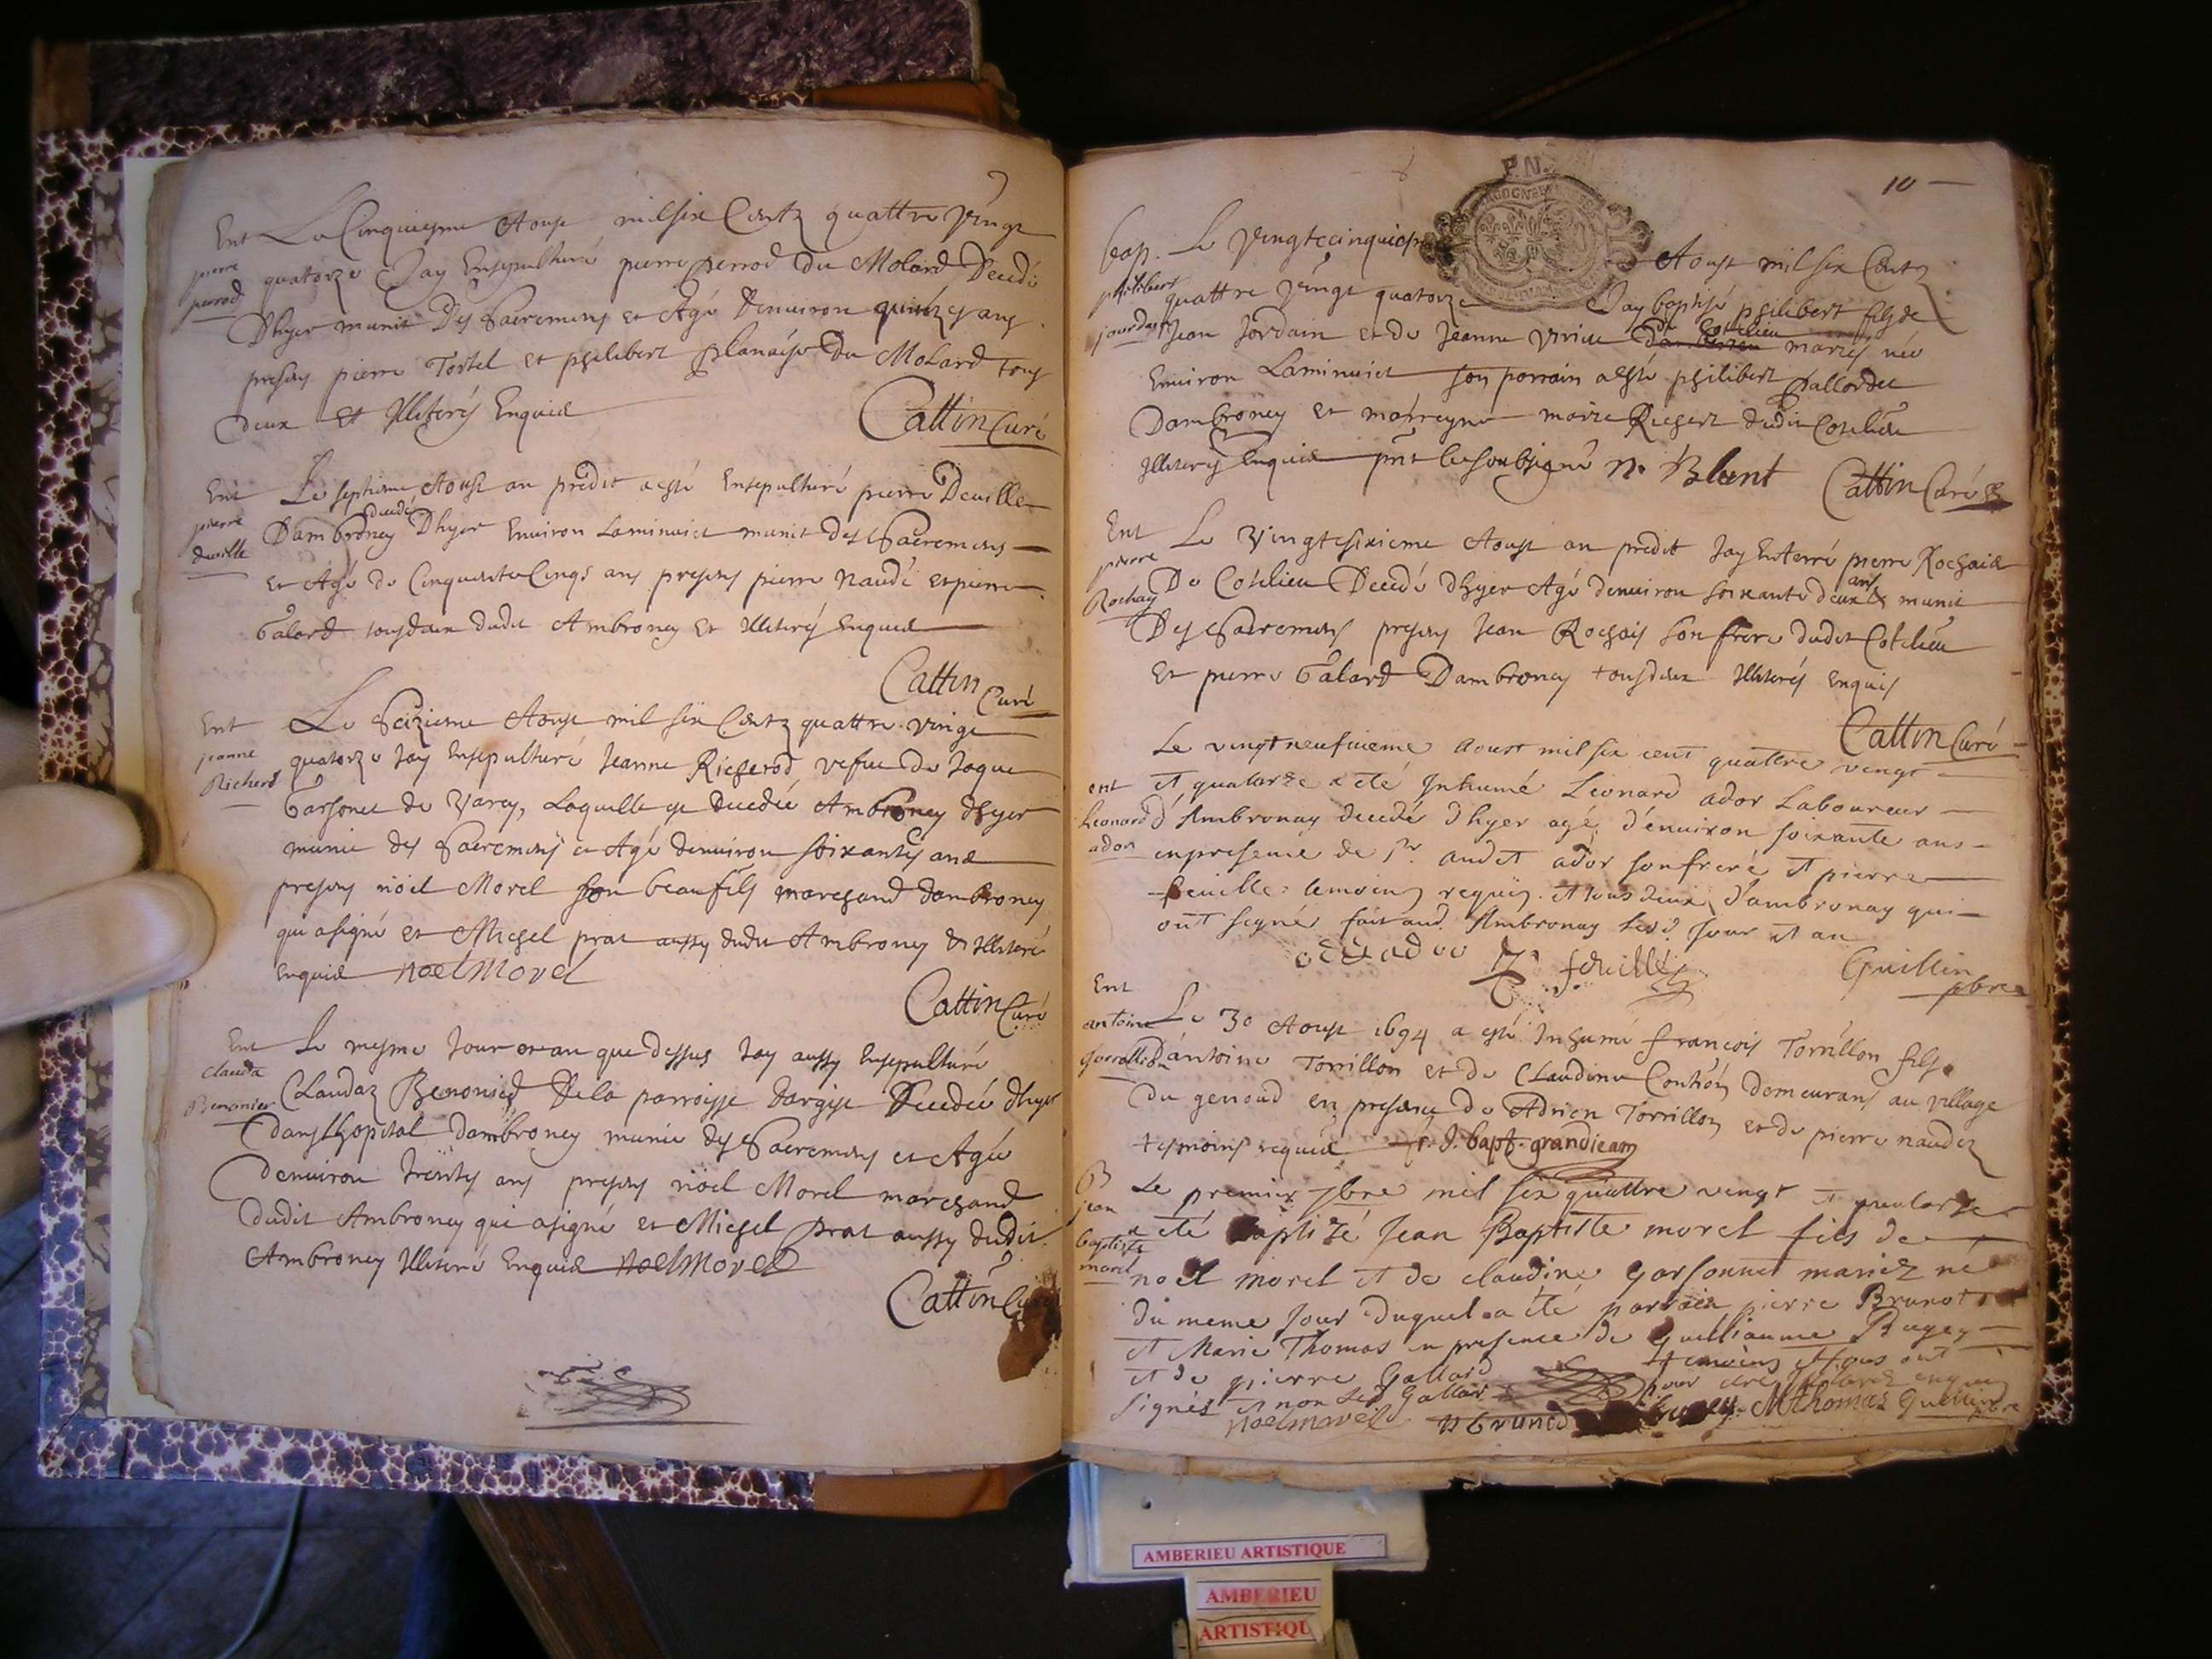 Ent Le Cinquiesme Aoust mil six Centz quattre vingt
pierre perrod
quatorze Jay Ensepulturé pierre perrod du Molard Decedé
Dhyer munit Des Sacremens et Agé Denuiron quinzes ans
presens pierre Tortel et philibert planaise Du Molard tous
deux Et Illiterés Enquis
Cattin Curé
Ent Le septieme Aoust an predit a esté Ensepulturé pierre Deuille
pierre deuille
Dambroney decedé Dhyer Enuiron Laminuict munit des Sacremens
et Agé de Cinquente Cinqs ans presens pierre Naudé et pierre
Galard tousdeux dudit Ambroney Et Illiterés Enquis
Cattin Curé
Ent Le Seizieme Aoust mil six Centz quattre vingt
jeanne Richerd
quatorze Jay Ensepulturé Jeanne Richerod vefue de Jaque
Garsonet de Varey, Laquelle est decedée Ambroney dhyer
munie des Sacremens et Agé denuiron soixantes ans
presens noel Morel son beaufils marchand dambroney
qui a signé et Michel prat aussy dudit Ambroney Et Illiteré
Enquis noel Morel
Cattin Curé
Ent Le mesme Jour et an que dessus Jay aussy Ensepulturé
clauda Benonier
Claudaz Benonied De la parroisse dargis Decedée dhyer
dans lhopital dambroney munie des Sacremens et Agée
denuiron trentes ans presens noel Morel marchand
dudit Ambroney qui a signé et Michel prat aussy dudit
Ambroney Illiteré Enquis noel Morel
Cattin Curé
P.N.
10
bap. Le Vingtecinquiesme Aoust mil six Centz
philibert jourdain
quattre vingt quatorze Jay baptisé philibert fils de
Jean Jordain et de Jeanne Virieu de Cotelieu mariés née
Enuiron Laminuict son parrain a esté philibert Pallordet
Dambroney et marreyne marie Richerd dudit Cotelieu
Illiterés Enquis pnt le soubsigné n. Blent Cattin Curé
Ent Le Vingtesixieme Aoust an predit Jay Enterré pierre Rochais
pierre Rochay
De Cotelieu Decedé dhyer Agé denuiron soixante deux ans munit
Des Sacremens presens Jean Rochais son frere dudit Cotelieu
Et pierre Galard Dambroney tousdeux Illiterés Enquis
Cattin Curé
Le vingt neufuieme Aoust mil six cent quattre vingt
ent Leonard ador
et quatorze a été Inhumé Leonard ador Laboureur
d'Ambronay decedé Dhyer agé d'enuiron soixante ans
en presence de Sr. audet ador son frere et pierre
feuille temoins requis et tous deux d'ambronay qui
ont signé fait aud. Ambronay lesd Jour et an
feuille Guillin pbre
Ent antoine
Le 30 Aoust 1694 a esté Inhumé francois Torrillon fils
Dantoine Torrillon et de Claudine Contion demeurans au village
du genoud en presence de Adrien Torrillon et de pierre naudez
tesmoins requis f. J. bapt. grandjean
B jean baptiste morel
Le premier 7bre mil six quattre vingt et quatorze
a été Baptizé Jean Baptiste morel fils de
noel morel et de claudine Garsonnet mariez né
du meme Jour duquel a été parrain pierre Brunot
et Marie Thomas en presence de Guilliaume Bugey
et de pierre Gallard temoins et tous ont
signés et non led Gallard pour etre enquis
noel morel brunod Bugey M thomas Guillin pbre
AMBERIEU ARTISTIQUE
AMBERIEU
ARTISTIQU